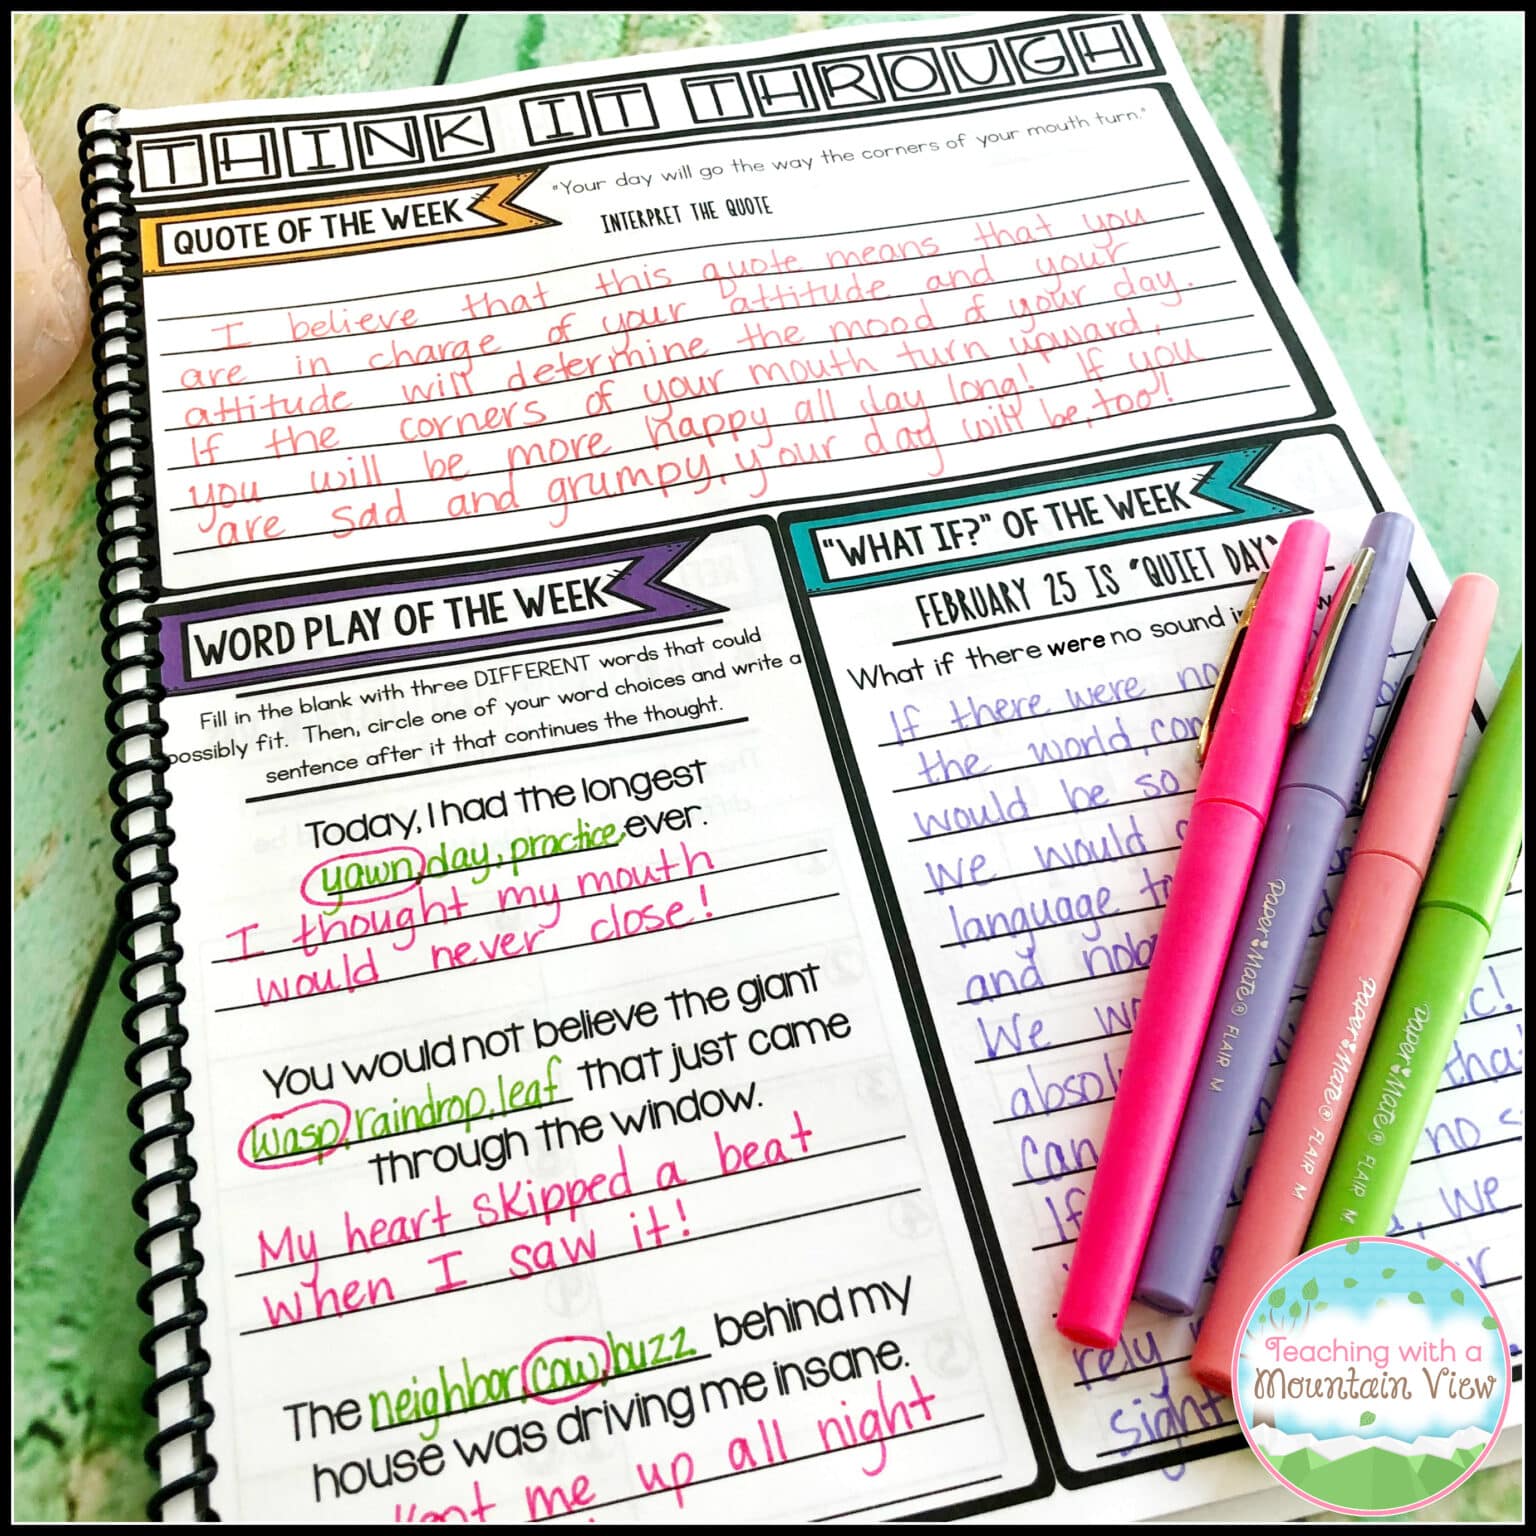 THINK IT THROUGH
QUOTE OF THE WEEK
"Your day will go the way the corners of your mouth turn."
INTERPRET THE QUOTE
I believe that this quote means that you
are in charge of your attitude and your
attitude will determine the mood of your day.
If the corners of your mouth turn upward,
you will be more happy all day long! If you
are sad and grumpy, your day will be, too!
WORD PLAY OF THE WEEK
Fill in the blank with three DIFFERENT words that could
possibly fit. Then, circle one of your word choices and write a
sentence after it that continues the thought.
Today, I had the longest
yawn, day, practice ever.
I thought my mouth
would never close!
You would not believe the giant
wasp, raindrop, leaf that just came
through the window.
My heart skipped a beat
when I saw it!
The neighbor, cow, buzz behind my
house was driving me insane.
me up all night
"WHAT IF?" OF THE WEEK
FEBRUARY 25 IS "QUIET DAY"
What if there were no sound
If there were no
the world,
would be so
we would
language
and
We
can
If
no
we
rely
sight
Paper Mate® FLAIR M
Paper Mate® FLAIR M
Paper Mate® FLAIR M
Teaching with a
Mountain View